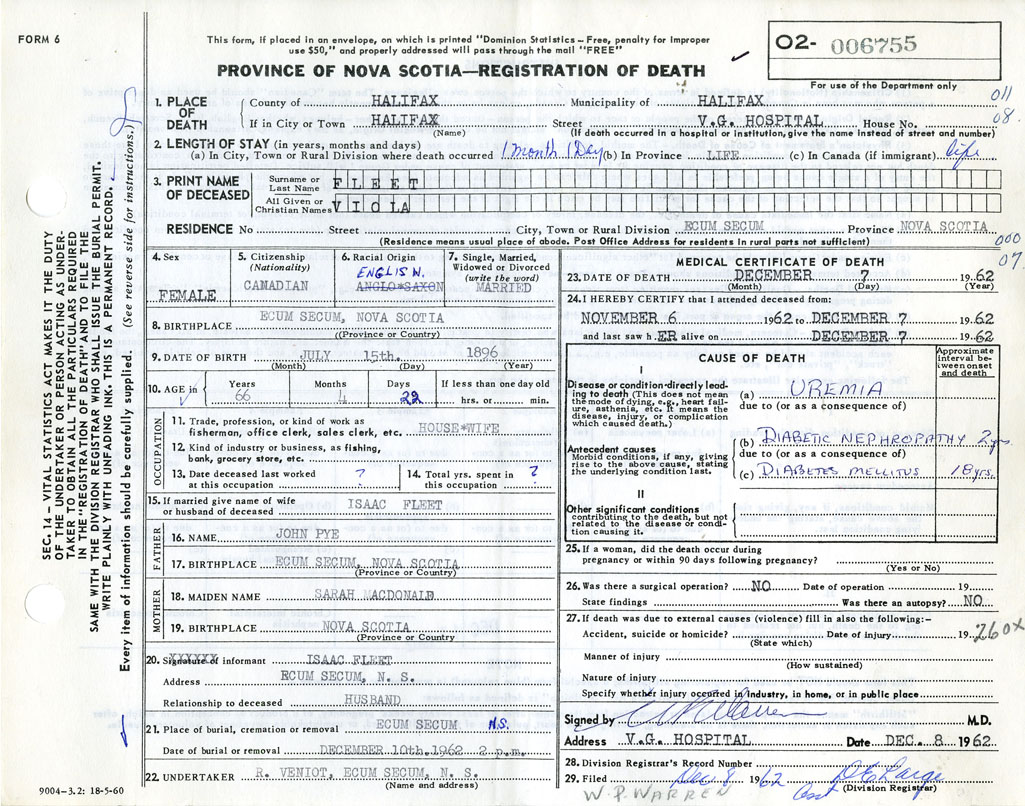 FORM 6
This form, if placed in an envelope, on which is printed "Dominion Statistics – Free, penalty for improper
use $50," and properly addressed will pass through the mail "FREE"
PROVINCE OF NOVA SCOTIA—REGISTRATION OF DEATH
O2- 006755
For use of the Department only
011
08.
1. PLACE OF DEATH
County of HALIFAX Municipality of HALIFAX
If in City or Town HALIFAX Street V.G. HOSPITAL House No.
(Name) (If death occurred in a hospital or institution, give the name instead of street and number)
2. LENGTH OF STAY (in years, months and days)
(a) In City, Town or Rural Division where death occurred 1 month 1 Day (b) In Province LIFE (c) In Canada (if immigrant) life
3. PRINT NAME OF DECEASED
Surname or Last Name FLEET
All Given or Christian Names VIOLA
RESIDENCE No Street City, Town or Rural Division ECUM SECUM Province NOVA SCOTIA
(Residence means usual place of abode. Post Office Address for residents in rural parts not sufficient)
000
07
4. Sex
FEMALE
5. Citizenship
(Nationality)
CANADIAN
6. Racial Origin
ENGLISH.
ANGLO*SAXON
7. Single, Married,
Widowed or Divorced
(write the word)
MARRIED
8. BIRTHPLACE ECUM SECUM, NOVA SCOTIA
((Province or Country)
9. DATE OF BIRTH JULY 15th. 1896
(Month) (Day) (Year)
10. AGE in
Years Months Days If less than one day old
66 4 22 hrs. or min.
OCCUPATION
11. Trade, profession, or kind of work as
fisherman, office clerk, sales clerk, etc. HOUSE*WIFE
12. Kind of industry or business, as fishing,
bank, grocery store, etc.
13. Date deceased last worked
at this occupation ?
14. Total yrs. spent in
this occupation ?
15. If married give name of wife
or husband of deceased ISAAC FLEET
FATHER
16. NAME JOHN PYE
17. BIRTHPLACE ECUM SECUM, NOVA SCOTIA
(Province or Country)
MOTHER
18. MAIDEN NAME SARAH MACDONALD
19. BIRTHPLACE NOVA SCOTIA
(Province or Country
20. Signature of informant ISAAC FLEET
Address ECUM SECUM, N. S.
Relationship to deceased HUSBAND
21. Place of burial, cremation or removal ECUM SECUM N.S.
Date of burial or removal DECEMBER 10th.1962 2 p.m.
22. UNDERTAKER R. VENIOT, ECUM SECUM, N. S.
(Name and address)
9004–3.2: 18-5-60
MEDICAL CERTIFICATE OF DEATH
23. DATE OF DEATH DECEMBER 7 1962
(Month) (Day) (Year)
24. I HEREBY CERTIFY that I attended deceased from:
NOVEMBER 6 1962 to DECEMBER 7 1962
and last saw h.ER alive on DECEMBER 7 1962
CAUSE OF DEATH
Approximate
interval be-
tween onset
and death
I
Disease or condition directly lead-
ing to death (This does not mean
the mode of dying, e.g., heart fail-
ure, asthenia, etc. It means the
disease, injury, or complication
which caused death.)
(a) UREMIA
due to (or as a consequence of)
Antecedent causes
Morbid conditions, if any, giving
rise to the above cause, stating
the underlying condition last.
(b) DIABETIC NEPHROPATHY 2 yrs.
due to (or as a consequence of)
(c) DIABETES MELLITUS 18 yrs.
II
Other significant conditions
contributing to the death, but not
related to the disease or condi-
tion causing it.
25. If a woman, did the death occur during
pregnancy or within 90 days following pregnancy?
(Yes or No)
26. Was there a surgical operation? NO Date of operation 19
State findings Was there an autopsy? NO
27. If death was due to external causes (violence) fill in also the following:–
Accident, suicide or homicide? Date of injury 19
(State which)
260X
Manner of injury
(How sustained)
Nature of injury
Specify whether injury occurred in industry, in home, or in public place
Signed by M.D.
Address V.G. HOSPITAL Date DEC. 8 1962
28. Division Registrar's Record Number
29. Filed Dec 8 1962
(Division Registrar)
W. P. WARREN
SEC. 14 – VITAL STATISTICS ACT MAKES IT THE DUTY
OF THE UNDERTAKER OR PERSON ACTING AS UNDER-
TAKER TO OBTAIN ALL THE PARTICULARS REQUIRED
IN THE "REGISTRATION OF DEATH" AND TO FILE THE
SAME WITH THE DIVISION REGISTRAR WHO SHALL ISSUE THE BURIAL PERMIT.
WRITE PLAINLY WITH UNFADING INK. THIS IS A PERMANENT RECORD.
Every item of information should be carefully supplied. (See reverse side for instructions.)